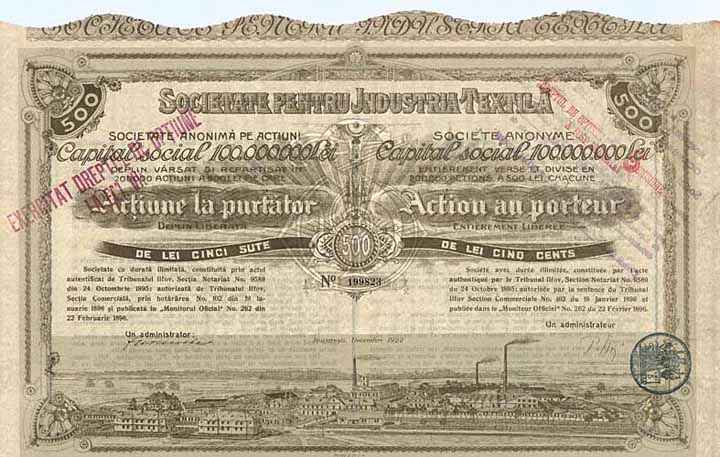 SOCIETATE PENTRU INDUSTRIA TEXTILA
500
500
SOCIETATE PENTRU INDUSTRIA TEXTILĂ
SOCIETATE ANONIMĂ PE ACTIUNI
Capital social 100.000.000 Lei
DEPLIN VĂRSAT ȘI REPARTISAT IN
200.000 ACTIUNI A 500 LEI DE CARE
Acțiune la purtător
DEPLIN LIBERATĂ
DE LEI CINCI SUTE
SOCIÉTÉ ANONYME
Capital social 100.000.000 Lei
ENTIÈREMENT VERSÉ ET DIVISÉ EN
200.000 ACTIONS A 500 LEI CHACUNE
Action au porteur
ENTIÈREMENT LIBÉRÉE
DE LEI CINQ CENTS
500
No 199823
Societate cu durată ilimitată, constituită prin actul
autentificat de Tribunalul Ilfov, Secția Notariat No. 9589
din 24 Octombrie 1895; autorizată de Tribunalul Ilfov,
Secția Comercială, prin hotărârea No. 102 din 19 Ia-
nuarie 1896 și publicată la „Monitorul Oficial" No. 262 din
22 Februarie 1896.
Un administrator:
Société avec durée illimitée, constituée par l'acte
authentiqué par le Tribunal Ilfov, Section Notariat No. 9589
du 24 Octobre 1895; autorisée par la sentence du Tribunal
Ilfov Section Commerciale No. 102 du 19 Janvier 1896 et
publiée dans le „Moniteur Oficiel" No. 262 du 22 Février 1896.
Un administrateur
București, Decembre 1922
EXERCITAT DREPTUL DE OPTIUNE